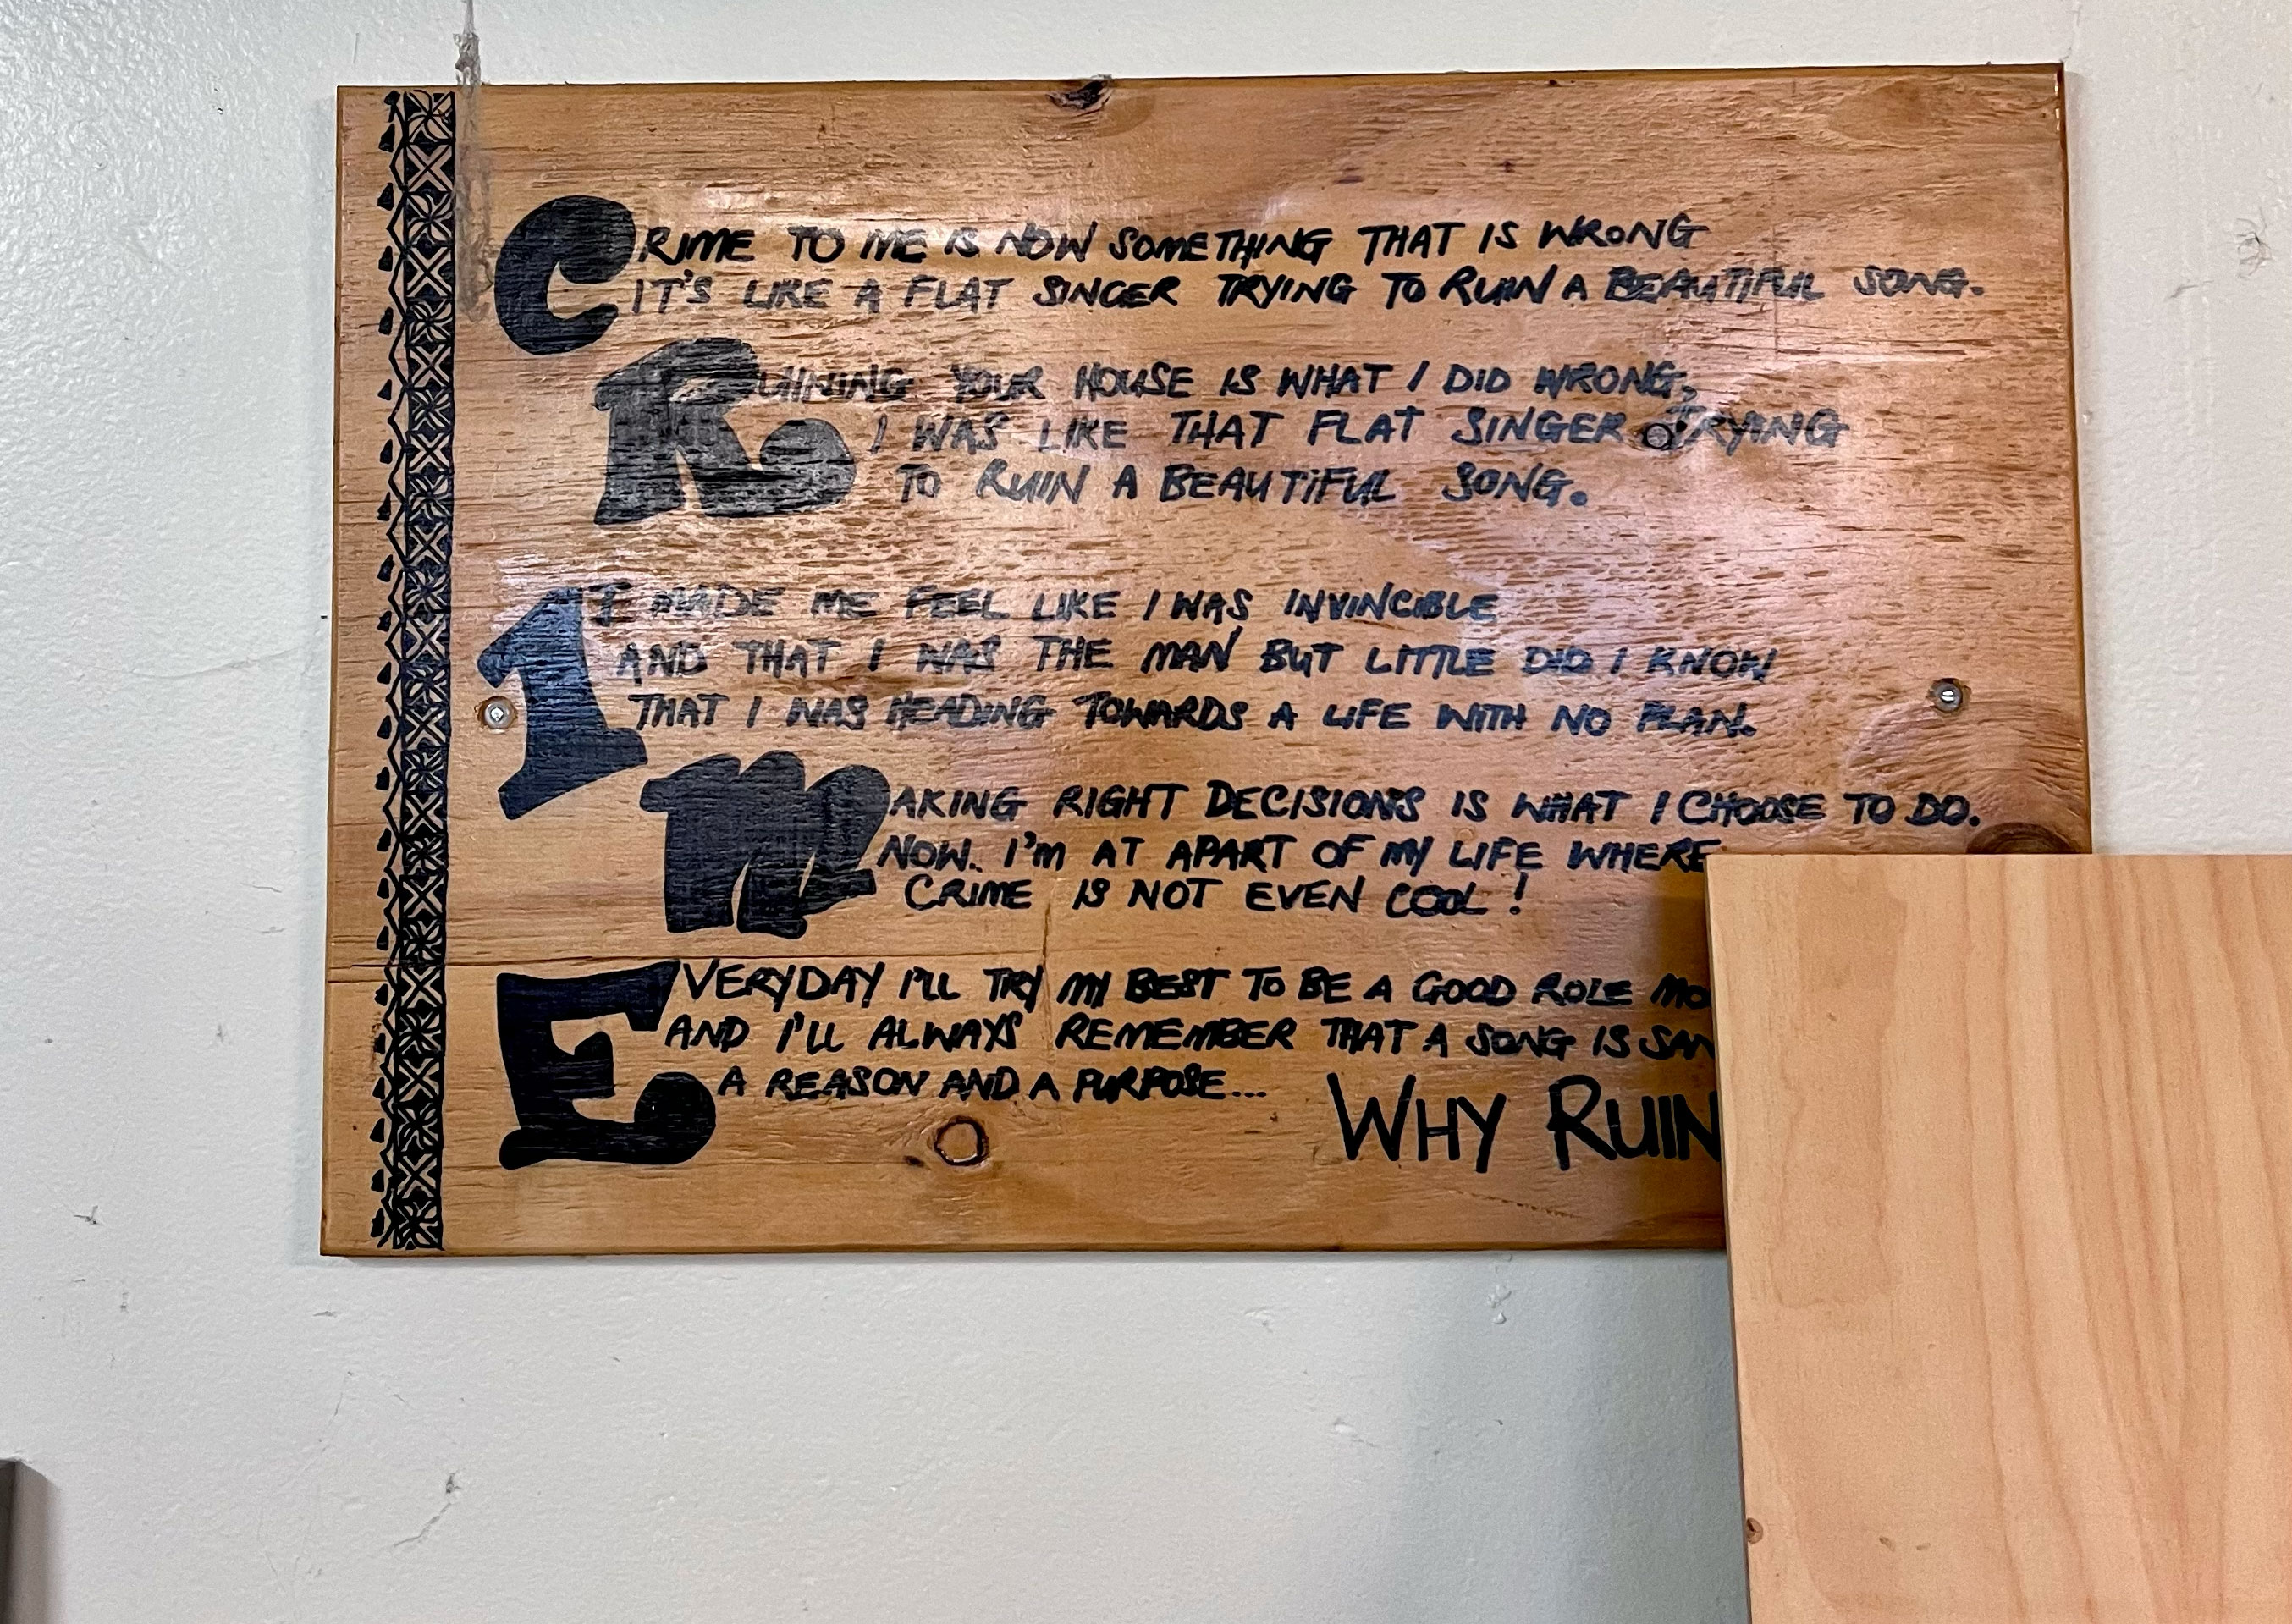 CRIME TO ME IS NOW SOMETHING THAT IS WRONG
IT'S LIKE A FLAT SINGER TRYING TO RUIN A BEAUTIFUL SONG.
RUINING YOUR HOUSE IS WHAT I DID WRONG,
I WAS LIKE THAT FLAT SINGER TRYING
TO RUIN A BEAUTIFUL SONG.
IT MADE ME FEEL LIKE I WAS INVINCIBLE
AND THAT I WAS THE MAN BUT LITTLE DID I KNOW
THAT I WAS HEADING TOWARDS A LIFE WITH NO PLAN.
MAKING RIGHT DECISIONS IS WHAT I CHOOSE TO DO.
NOW. I'M AT APART OF MY LIFE WHERE
CRIME IS NOT EVEN COOL!
EVERYDAY I'LL TRY MY BEST TO BE A GOOD ROLE MO
AND I'LL ALWAYS REMEMBER THAT A SONG IS SAN
A REASON AND A PURPOSE...
WHY RUIN